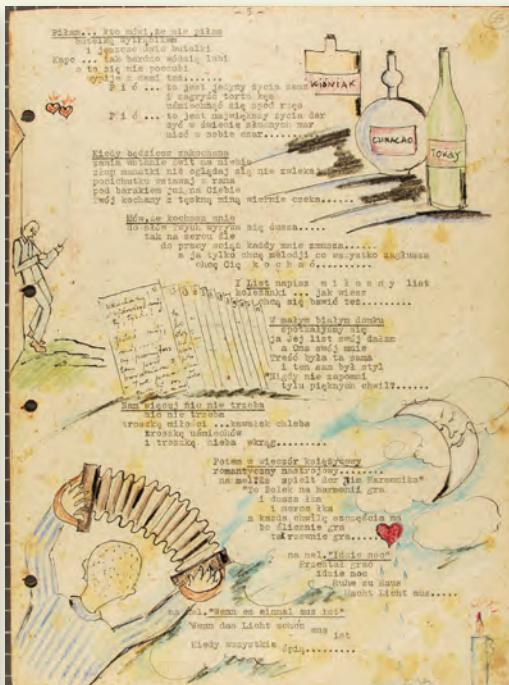 - 5 -
Piłam... kto mówi,że nie piłam
butelkę wytrąbiłam
i jeszcze dwie butelki
Kapo ... tak bardzo wódzię lubi
a to się nie poczubi
wypije z nami też......
P i ć ... to jest jedyny życia sens
i zagryźć torta kęs
uśmiechnąć się spod rzęs
P i ć ... to jest największy życia dar
żyć w świecie złudnych mar
mieć w sobie czar..........
WIŚNIAK
CURACAO
TOKAJ
Kiedy będziesz zakochana
zanim wstanie świt na niebie
złap manatki nie oglądaj się nie zwlekaj
pocichutku wstawaj z rana
pod barakiem już na Ciebie
Twój kochany z tęskną miną wiernie czeka......
Mów,że kochasz mnie
do słów Twych wyrywa się dusza.....
tak na sercu źle
do pracy wciąż każdy mnie zmusza......
a ja tylko chcę melodji co wszystko zagłusza
chcę Cię k o c h a ć.........
I List napisz m i ł o s n y list
koleżanki ... jak wiesz
chcą się bawić też.........
W małym białym domku
spotkałyśmy się
ja Jej list swój dałam
a Ona swój mnie
Treść była ta sama
i ten sam był styl
"Nigdy nie zapomni
tylu pięknych chwil".......
Nam więcej nic nie trzeba
nic nie trzeba
troszkę miłości ...kawałek chleba
troszkę uśmiechów
i troszkę nieba wkrąg.........
Potem w wieczór księżycowy
romantyczny nastrojowy........
na mel."Es spielt der Jim Harmonika"
"To Bolek na harmonii gra
i dusza łka
i serce łka
a każda chwilę szczęścia ma
bo ślicznie gra
ta rzewnie gra.....
na mel."Idzie noc"
Przestał grać
idzie noc
Ruhe zu Haus
Macht Licht aus.....
na mel."Wenn es einmal aus ist"
Wenn das Licht schon
aus
ist
Kiedy wszystkie śpią.........